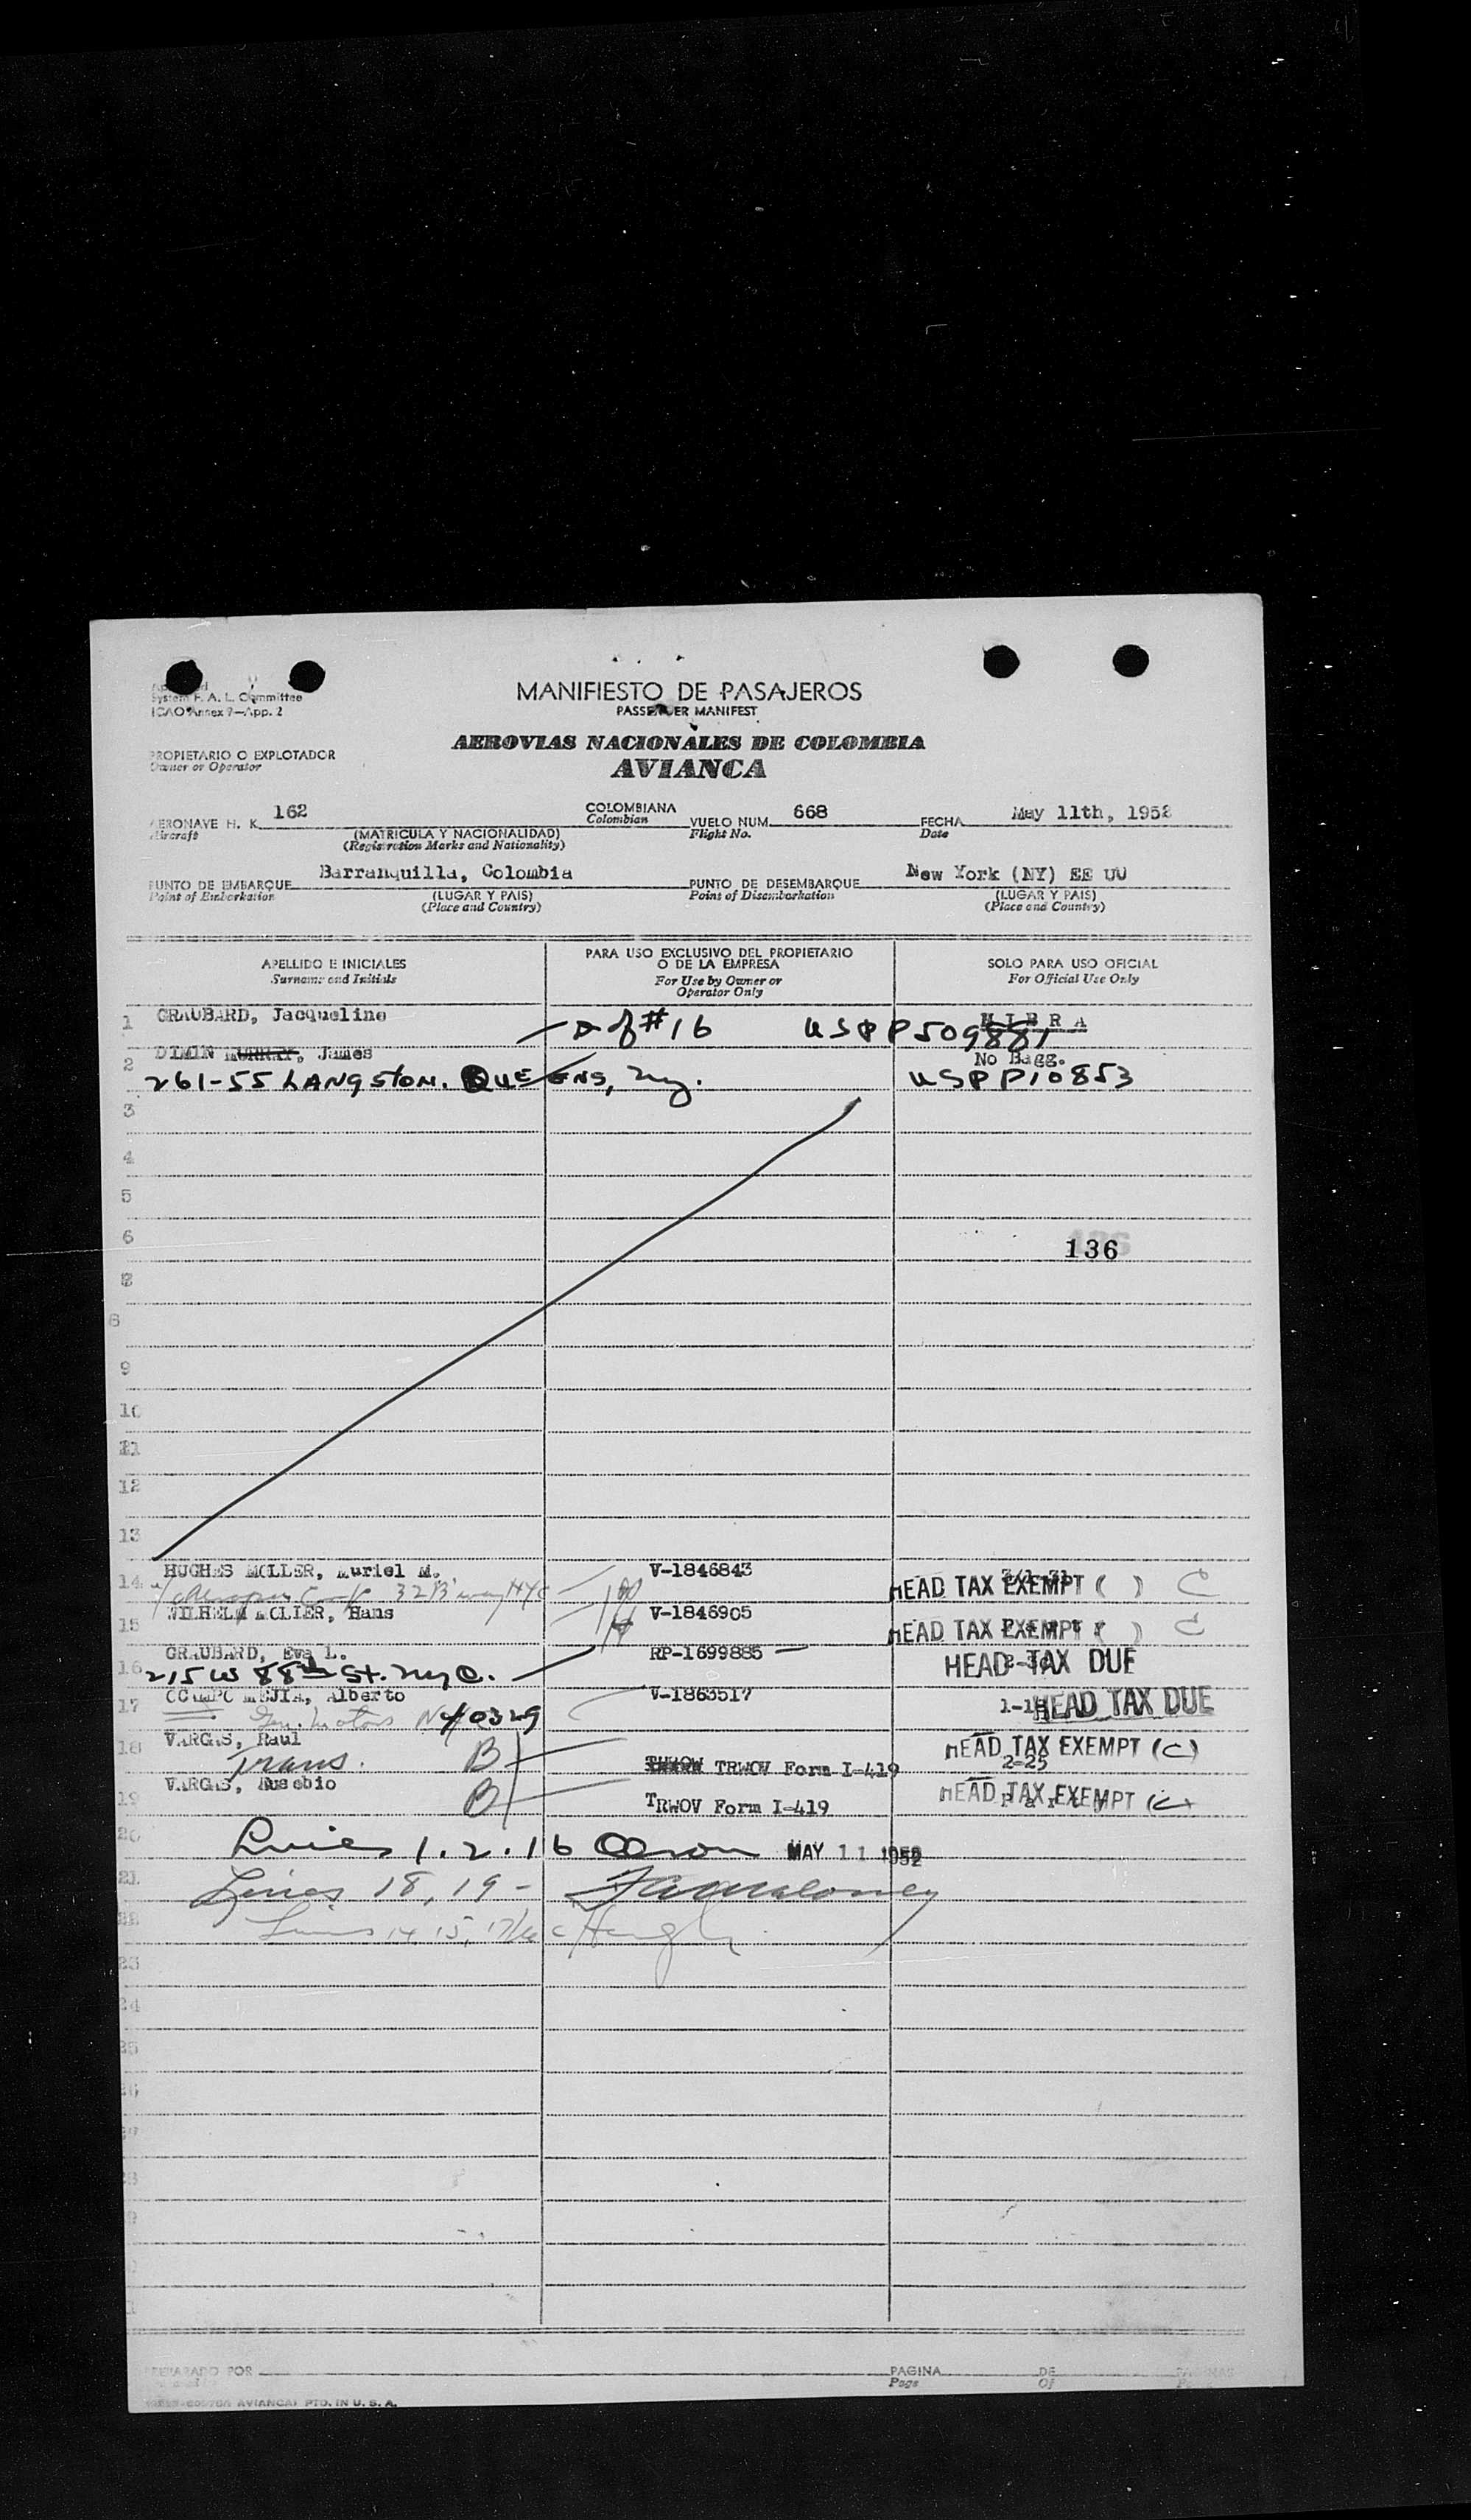 System F. A. L. Committee
ICAO Annex 9—App. 2
MANIFIESTO DE PASAJEROS
PASSENGER MANIFEST
AEROVIAS NACIONALES DE COLOMBIA
AVIANCA
PROPIETARIO O EXPLOTADOR
Owner or Operator
AERONAVE H. K. 162 COLOMBIANA VUELO NUM. 668 FECHA May 11th, 1952
Aircraft Colombian Flight No. Date
(MATRICULA Y NACIONALIDAD)
(Registration Marks and Nationality)
PUNTO DE EMBARQUE Barranquilla, Colombia PUNTO DE DESEMBARQUE New York (NY) EE UU
Point of Embarkation (LUGAR Y PAIS) Point of Disembarkation (LUGAR Y PAIS)
(Place and Country) (Place and Country)
APELLIDO E INICIALES
Surname and Initials
PARA USO EXCLUSIVO DEL PROPIETARIO
O DE LA EMPRESA
For Use by Owner or
Operator Only
SOLO PARA USO OFICIAL
For Official Use Only
1 GRAUBARD, Jacqueline D of #16 USPP509881 M I B R A
2 DIMIN MURRAY, James No Bagg.
261-55 LANGSTON. QUEENS, NY. USPP10853
3
4
5
6 136
8
9
10
11
12
13
14 HUGHES MOLLER, Muriel M. V-1846843 HEAD TAX EXEMPT ( ) C
32 B'way NYC
15 WILHELM MOLLER, Hans V-1846905 HEAD TAX EXEMPT ( ) C
16 GRAUBARD, Eva L. RP-1699885 HEAD TAX DUE
215 W 88th St. NYC.
17 OCAMPO MEJIA, Alberto V-1863517 1-18 HEAD TAX DUE
Gen. Motors NY 0329
18 VARGAS, Raul B TRWOV Form I-419 HEAD TAX EXEMPT (C)
Trans. 2-25
19 VARGAS, Eusebio B TRWOV Form I-419 HEAD TAX EXEMPT (C)
20 Lines 1.2.16 MAY 11 1952
21 Lines 18, 19 -
22 Lines 14, 15, 17
23
24
25
PAGINA DE
Page Of
AVIANCA) PTD. IN U. S. A.